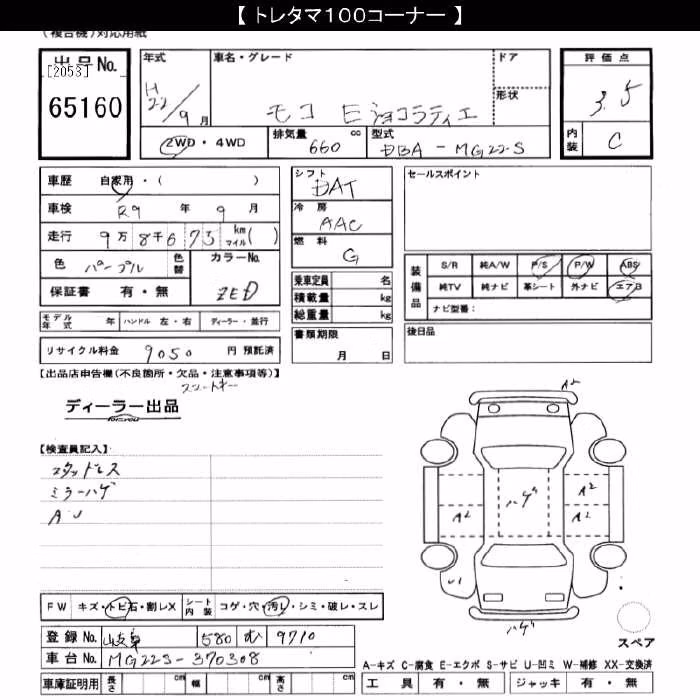 【 トレタマ100コーナー 】
(複合機)対応用紙
出品No.
[2053]
65160
年式
H22/9月
車名・グレード
モコ Eショコラティエ
ドア
形状
評価点
3.5
内装 C
2WD・4WD
排気量 660 cc
型式 DBA-MG22S
車歴 自家用・( )
車検 R9 年 9 月
走行 9万8千673 km マイル( )
色 パープル
色替
カラーNo. ZED
保証書 有・無
シフト DAT
冷房 AAC
燃料 G
乗車定員 名
積載量 kg
総重量 kg
セールスポイント
装備品
S/R 純A/W P/S P/W ABS
純TV 純ナビ 革シート 外ナビ エアB
ナビ型番:
モデル年式 年 ハンドル 左・右 ディーラー・並行
書類期限 月 日
後日品
リサイクル料金 9050 円 預託済
【出品店申告欄(不良箇所・欠品・注意事項等)】
スマートキー
ディーラー出品
【検査員記入】
スタッドレス
ミラーハゲ
AU
A2
ハゲ
A2
A2
A2
A2
U1
ハゲ
スペア
FW キズ・トビ石・割レX
シート内装 コゲ・穴・汚レ・シミ・破レ・スレ
登録No. 岐阜 580 む 9710
車台No. MG22S-370308
車庫証明用 長さ cm 幅 cm 高さ cm
A-キズ C-腐食 E-エクボ S-サビ U-凹ミ W-補修 XX-交換済
工具 有・無 ジャッキ 有・無